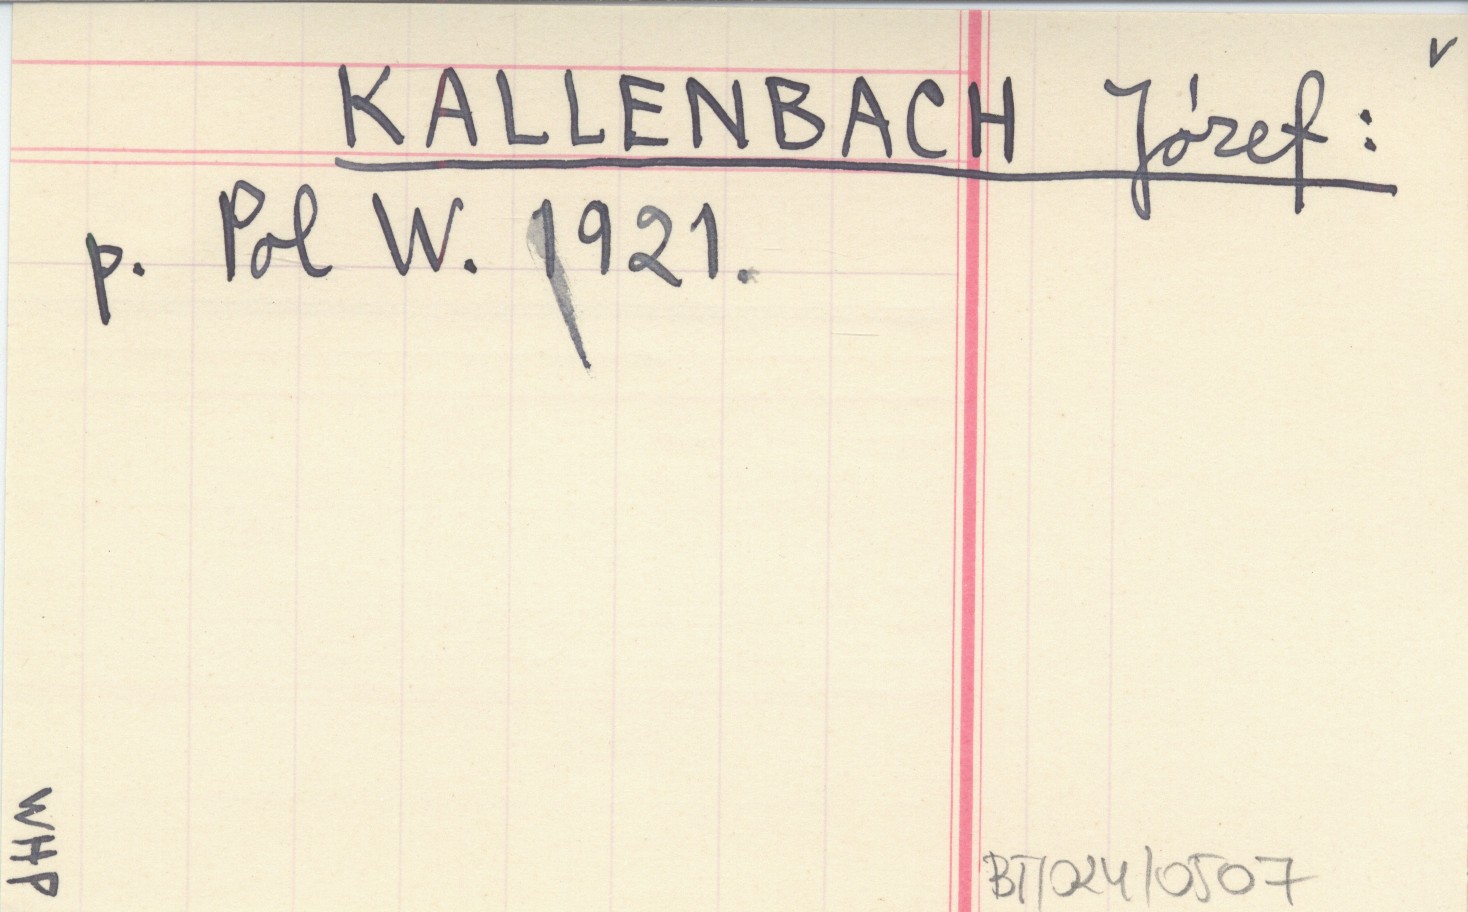 v
KALLENBACH Józef:
p. Pol W. 1921.
WHP
BT/024/0507